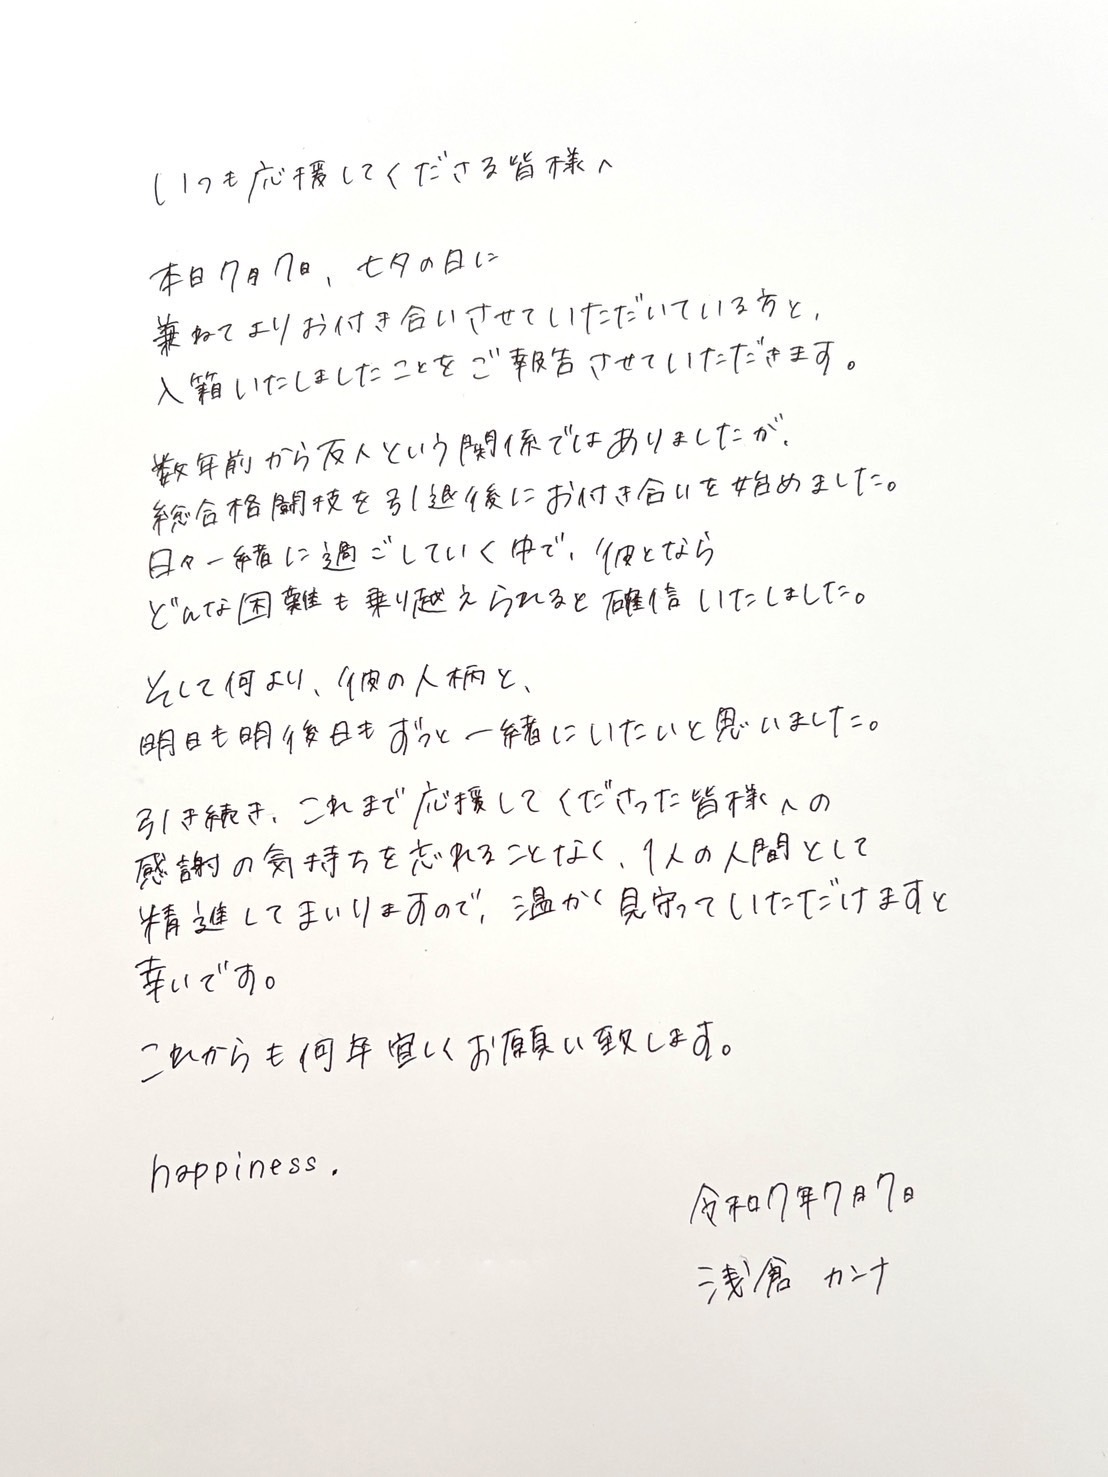 いつも応援してくださる皆様へ
本日7月7日、七夕の日に
兼ねてよりお付き合いさせていただいている方と、
入籍いたしましたことをご報告させていただきます。
数年前から友人という関係ではありましたが、
総合格闘技を引退後にお付き合いを始めました。
日々一緒に過ごしていく中で、彼となら
どんな困難も乗り越えられると確信いたしました。
そして何より、彼の人柄と、
明日も明後日もずっと一緒にいたいと思いました。
引き続き、これまで応援してくださった皆様への
感謝の気持ちを忘れることなく、1人の人間として
精進してまいりますので、温かく見守っていただけますと
幸いです。
これからも何年宜しくお願い致します。
happiness.
令和7年7月7日
浅倉 カンナ